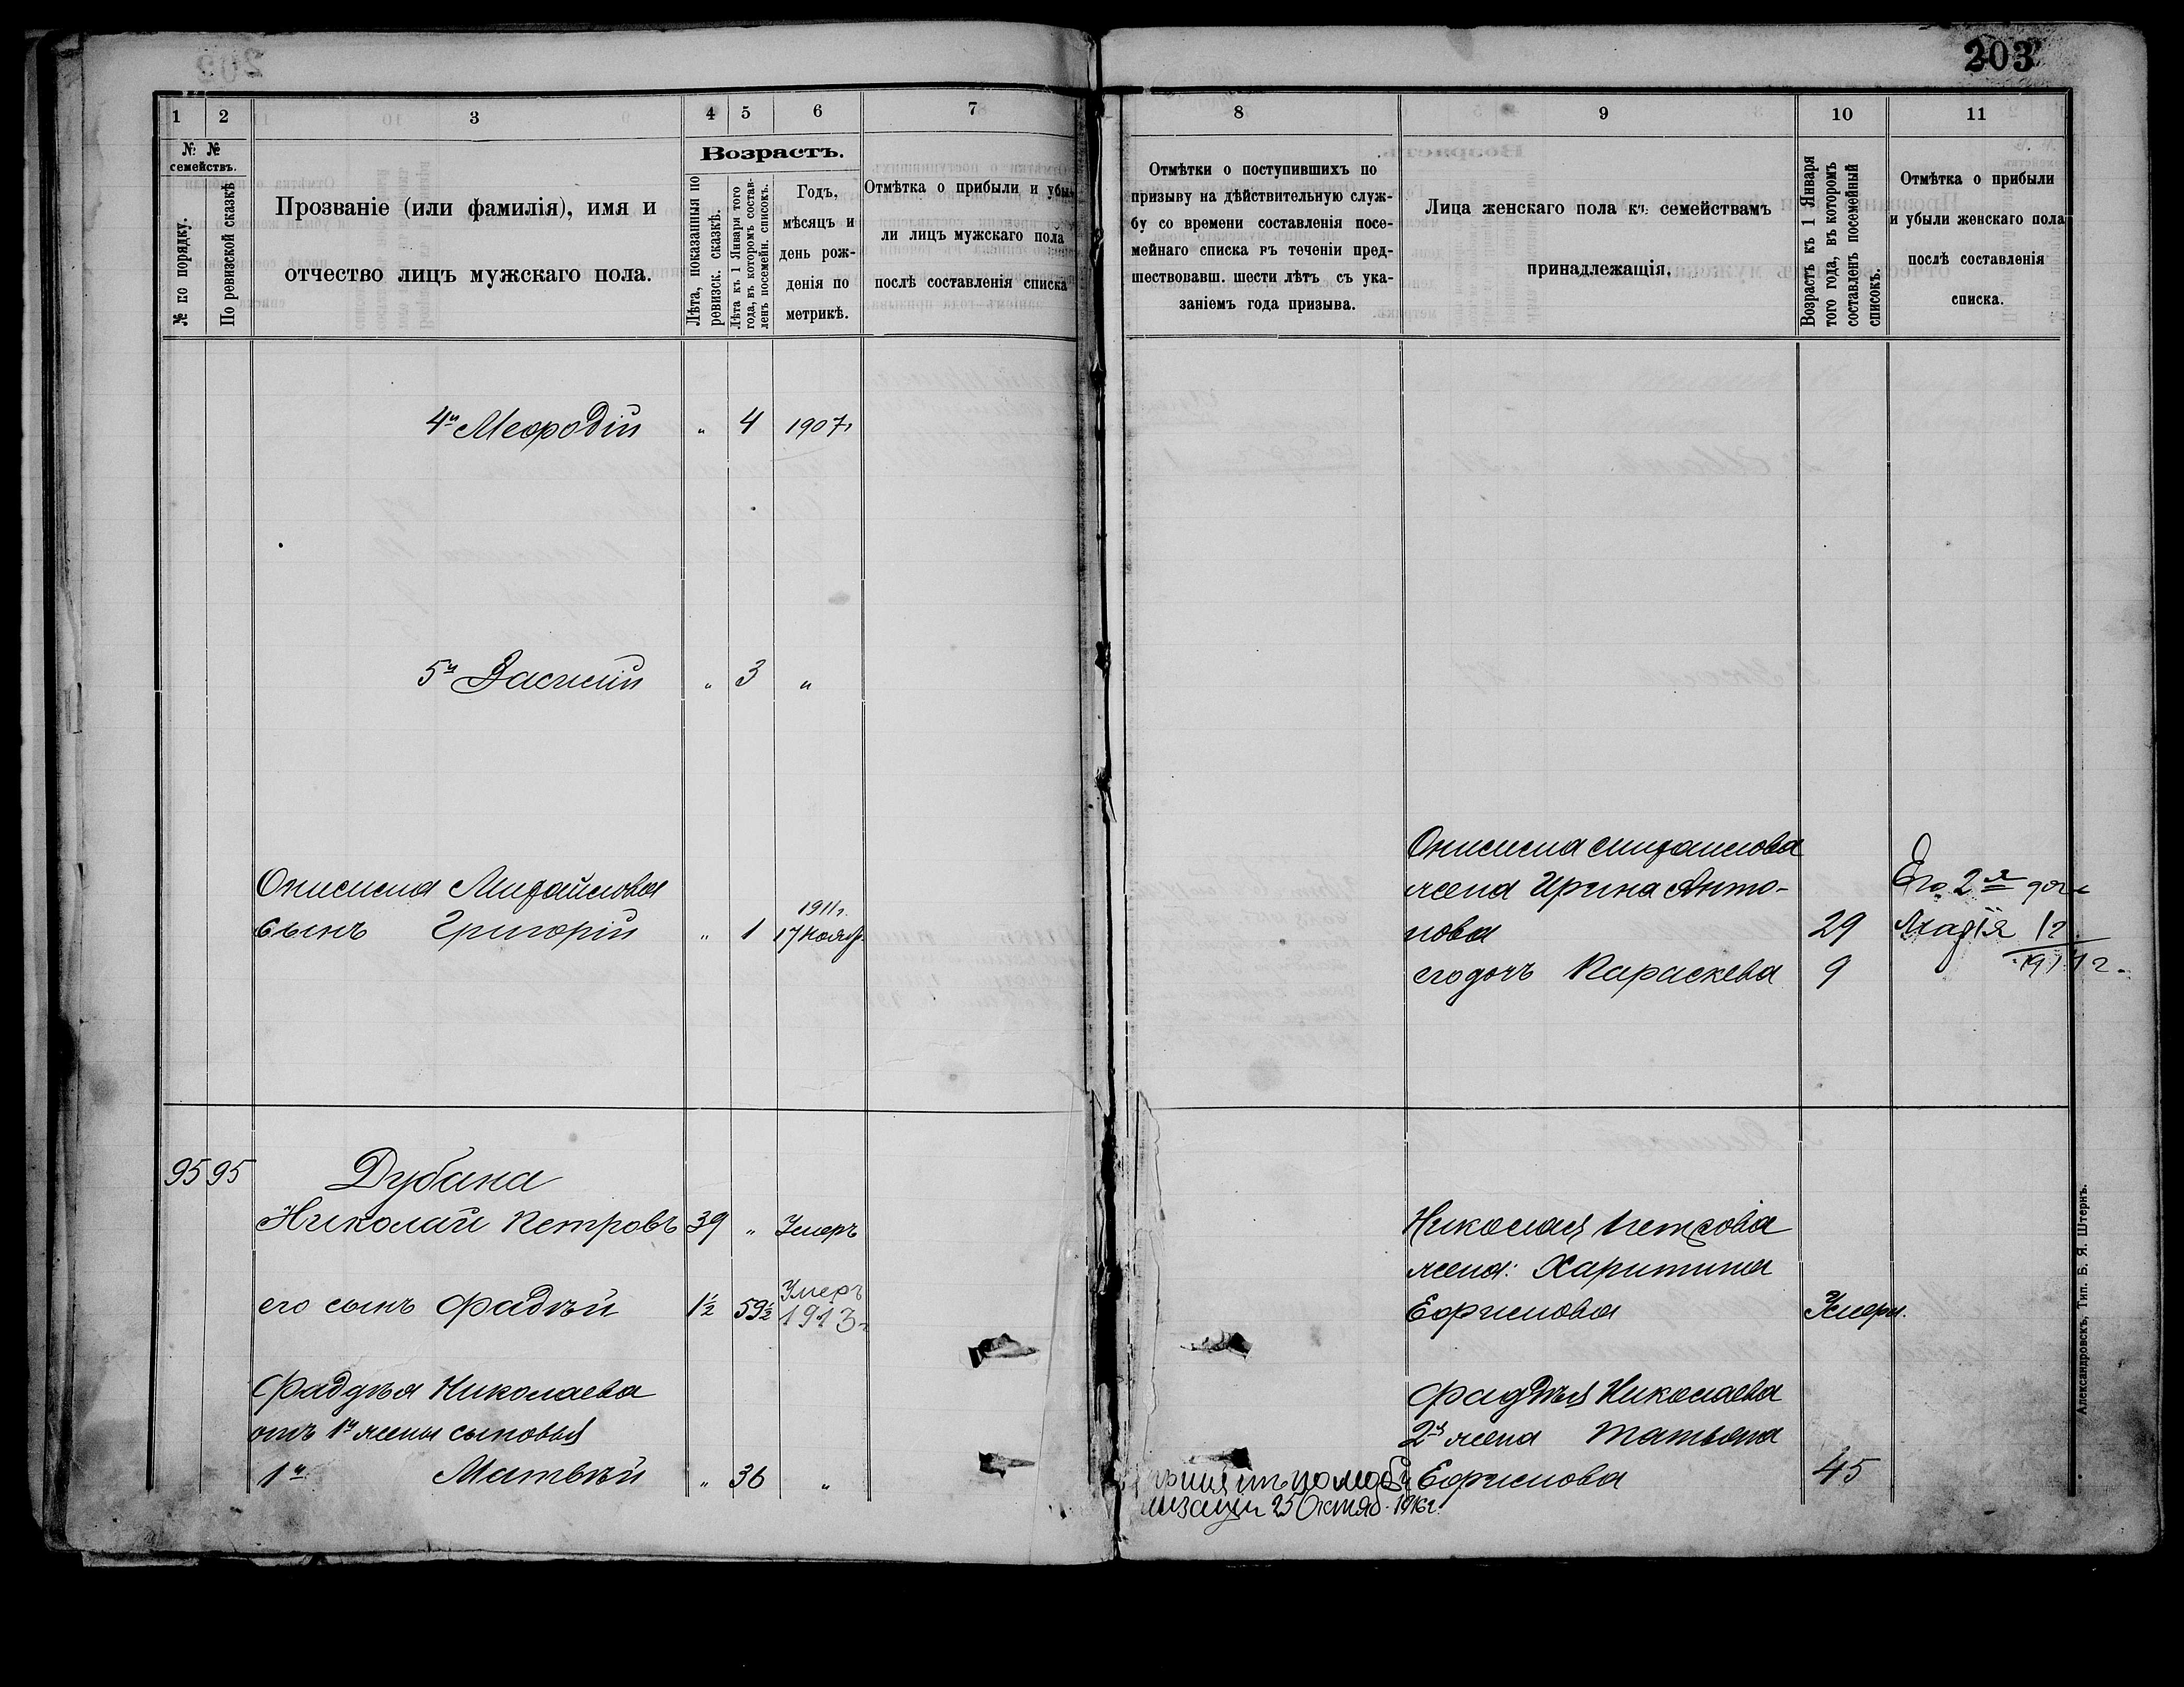 203
1 2 3 4 5 6 7
№ №
семействъ.
№ по порядку.
По ревизской сказкѣ
Прозваніе (или фамилія), имя и
отчество лицъ мужскаго пола.
Возрастъ.
Лѣта, показанныя по
ревизск. сказкѣ.
Лѣта къ 1 Января того
года, въ которомъ состав-
ленъ посемейн. списокъ.
Годъ,
мѣсяцъ и
день рож-
денія по
метрикѣ.
Отмѣтка о прибыли и убы-
ли лицъ мужскаго пола
послѣ составленія списка
4й Меѳодій " 4 1907г
5й Василій " 3 "
Онисима Михайлова
1911г.
сынъ Григорій " 1 17 Нояб.
95 95 Дубана
Николай Петровъ 39 " Умеръ
Умеръ
его сынъ Фадѣй 1½ 59½ 1913г
Фаддѣя Николаева
отъ 1й жены сыновья
1й Матвѣй " 36 "
8 9 10 11
Отмѣтки о поступившихъ по
призыву на дѣйствительную служ-
бу со времени составленія посе-
мейнаго списка въ теченіи пред-
шествовавш. шести лѣтъ съ ука-
заніемъ года призыва.
Лица женскаго пола къ семействамъ
принадлежащія.
Возрастъ къ 1 Января
того года, въ которомъ
составленъ посемейный
списокъ.
Отмѣтка о прибыли
и убыли женскаго пола
послѣ составленія
списка.
Онисима Михаилова
жена Ирина Анто-
нова 29
его дочь Параскева 9
Его 2я доч
Марія 1г
1911г.
Николая Петрова
жена: Харитина
Ефимова Умерл.
Фаддѣя Николаева
2я жена Татьяна
Ефимова 45
принятъ по моби
лизации 25 Октяб. 1916г.
Александровскъ, Тип. Б. Я. Штернъ.